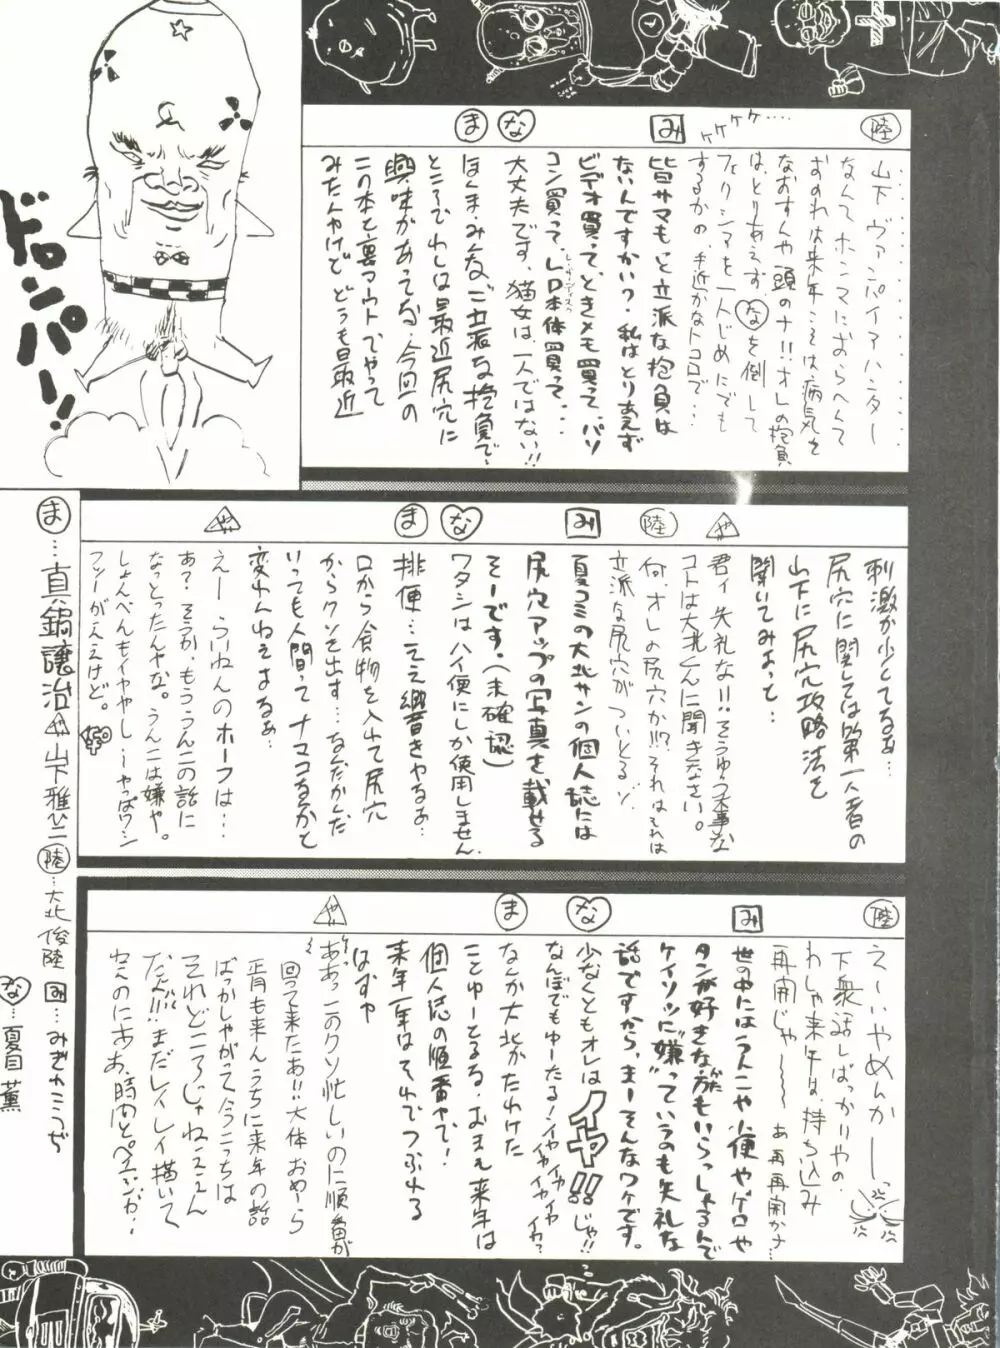 陸
山下ヴァンパイアハンター
なんてホンマにおらへくて
おすのれは来年こそは病気を
なおすんや頭のナ!!オレの抱負
は、とりあえず、なを倒して
フェリシアを一人じめにでも
するかの、手近かなトコロで…
ケケケケ…
み
皆サマもっと立派な抱負は
ないんですかい?私はとりあえず
ビデオ買って、ときメモ買って、パソ
コン買って、LD本体買って…
な
大丈夫です、猫女は、一人ではない!!
ま
ほんま、みんな、ご立派な抱負で、
ところでわしは最近尻穴に
興味があってな、今回の
この本も裏マウトでやって
みたんやけど、どうも最近
ドロンパー!!
刺激が少とてるぁ…
尻穴に関しては第一人者の
山下に尻穴攻略法を
聞いてみよって
や
君ィ失礼な!!そうゆう大事な
コトは大北くんに聞きなさい。
陸
何、オレの尻穴か!!?それはそれは
立派な尻穴がついとるゾ
み
夏コミの大北サンの個人誌には
尻穴アップの写真を載せる
そーです。(未確認)
な
ワタシはハイ便にしか使用しません
ま
排便…ええ響きやなぁ…
口から食物を入れて尻穴
からクソを出す…なんだかんだ
いっても人間ってナマコなんかと
変わんねぇなぁ…
や
えー らいねんのホーフは…
あ?そうか、もううんこの話に
なっとったんやな。うんこは嫌や。
しょんべんもイヤやし…やっぱワシ
フツーがええけど。
陸
え〜いやめんかーっ
下衆な話しばっかりやの
わしゃ来年は、持ち込み
再開じゃ〜〜 あ再再開かナ…
み
世の中にはうんこや小便やゲロや
タンが好きな方もいらっしゃるんで
ケイソツに"嫌"っていうのも失礼な
話ですから、まーそんなワケです。
な
少なくともオレはイヤ!!じゃ!!
なんぼでもゆーたる!イヤイヤイヤイヤイヤ?
ま
なんか大北がたわけた
ことゆーとるな、おまえ来年は
個人誌の順番やで!
来年一年はそれでつぶれる
はずや
や
ああっこのクソ忙しいのに順番が
回って来たぁ!!大体おめーら
正月も来んうちに来年の話
ばっかしやがって今こっちは
それどころじゃねええん
だよ!!まだレイレイ描いて
ねえのにああ、時間とページが…
ま…真鍋譲治 や…山下雅弘 陸…大北俊陸 み…みぎわこうぢ
な…夏目薫